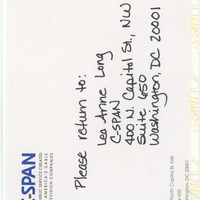 Please return to:
Lea Anne Long
C-SPAN
400 N. Capitol St., NW
Suite 650
Washington, DC 20001
C-SPAN
SERVICE CREATED
AMERICA'S CABLE
VISION COMPANIES
North Capitol St. NW
Washington, DC 20001